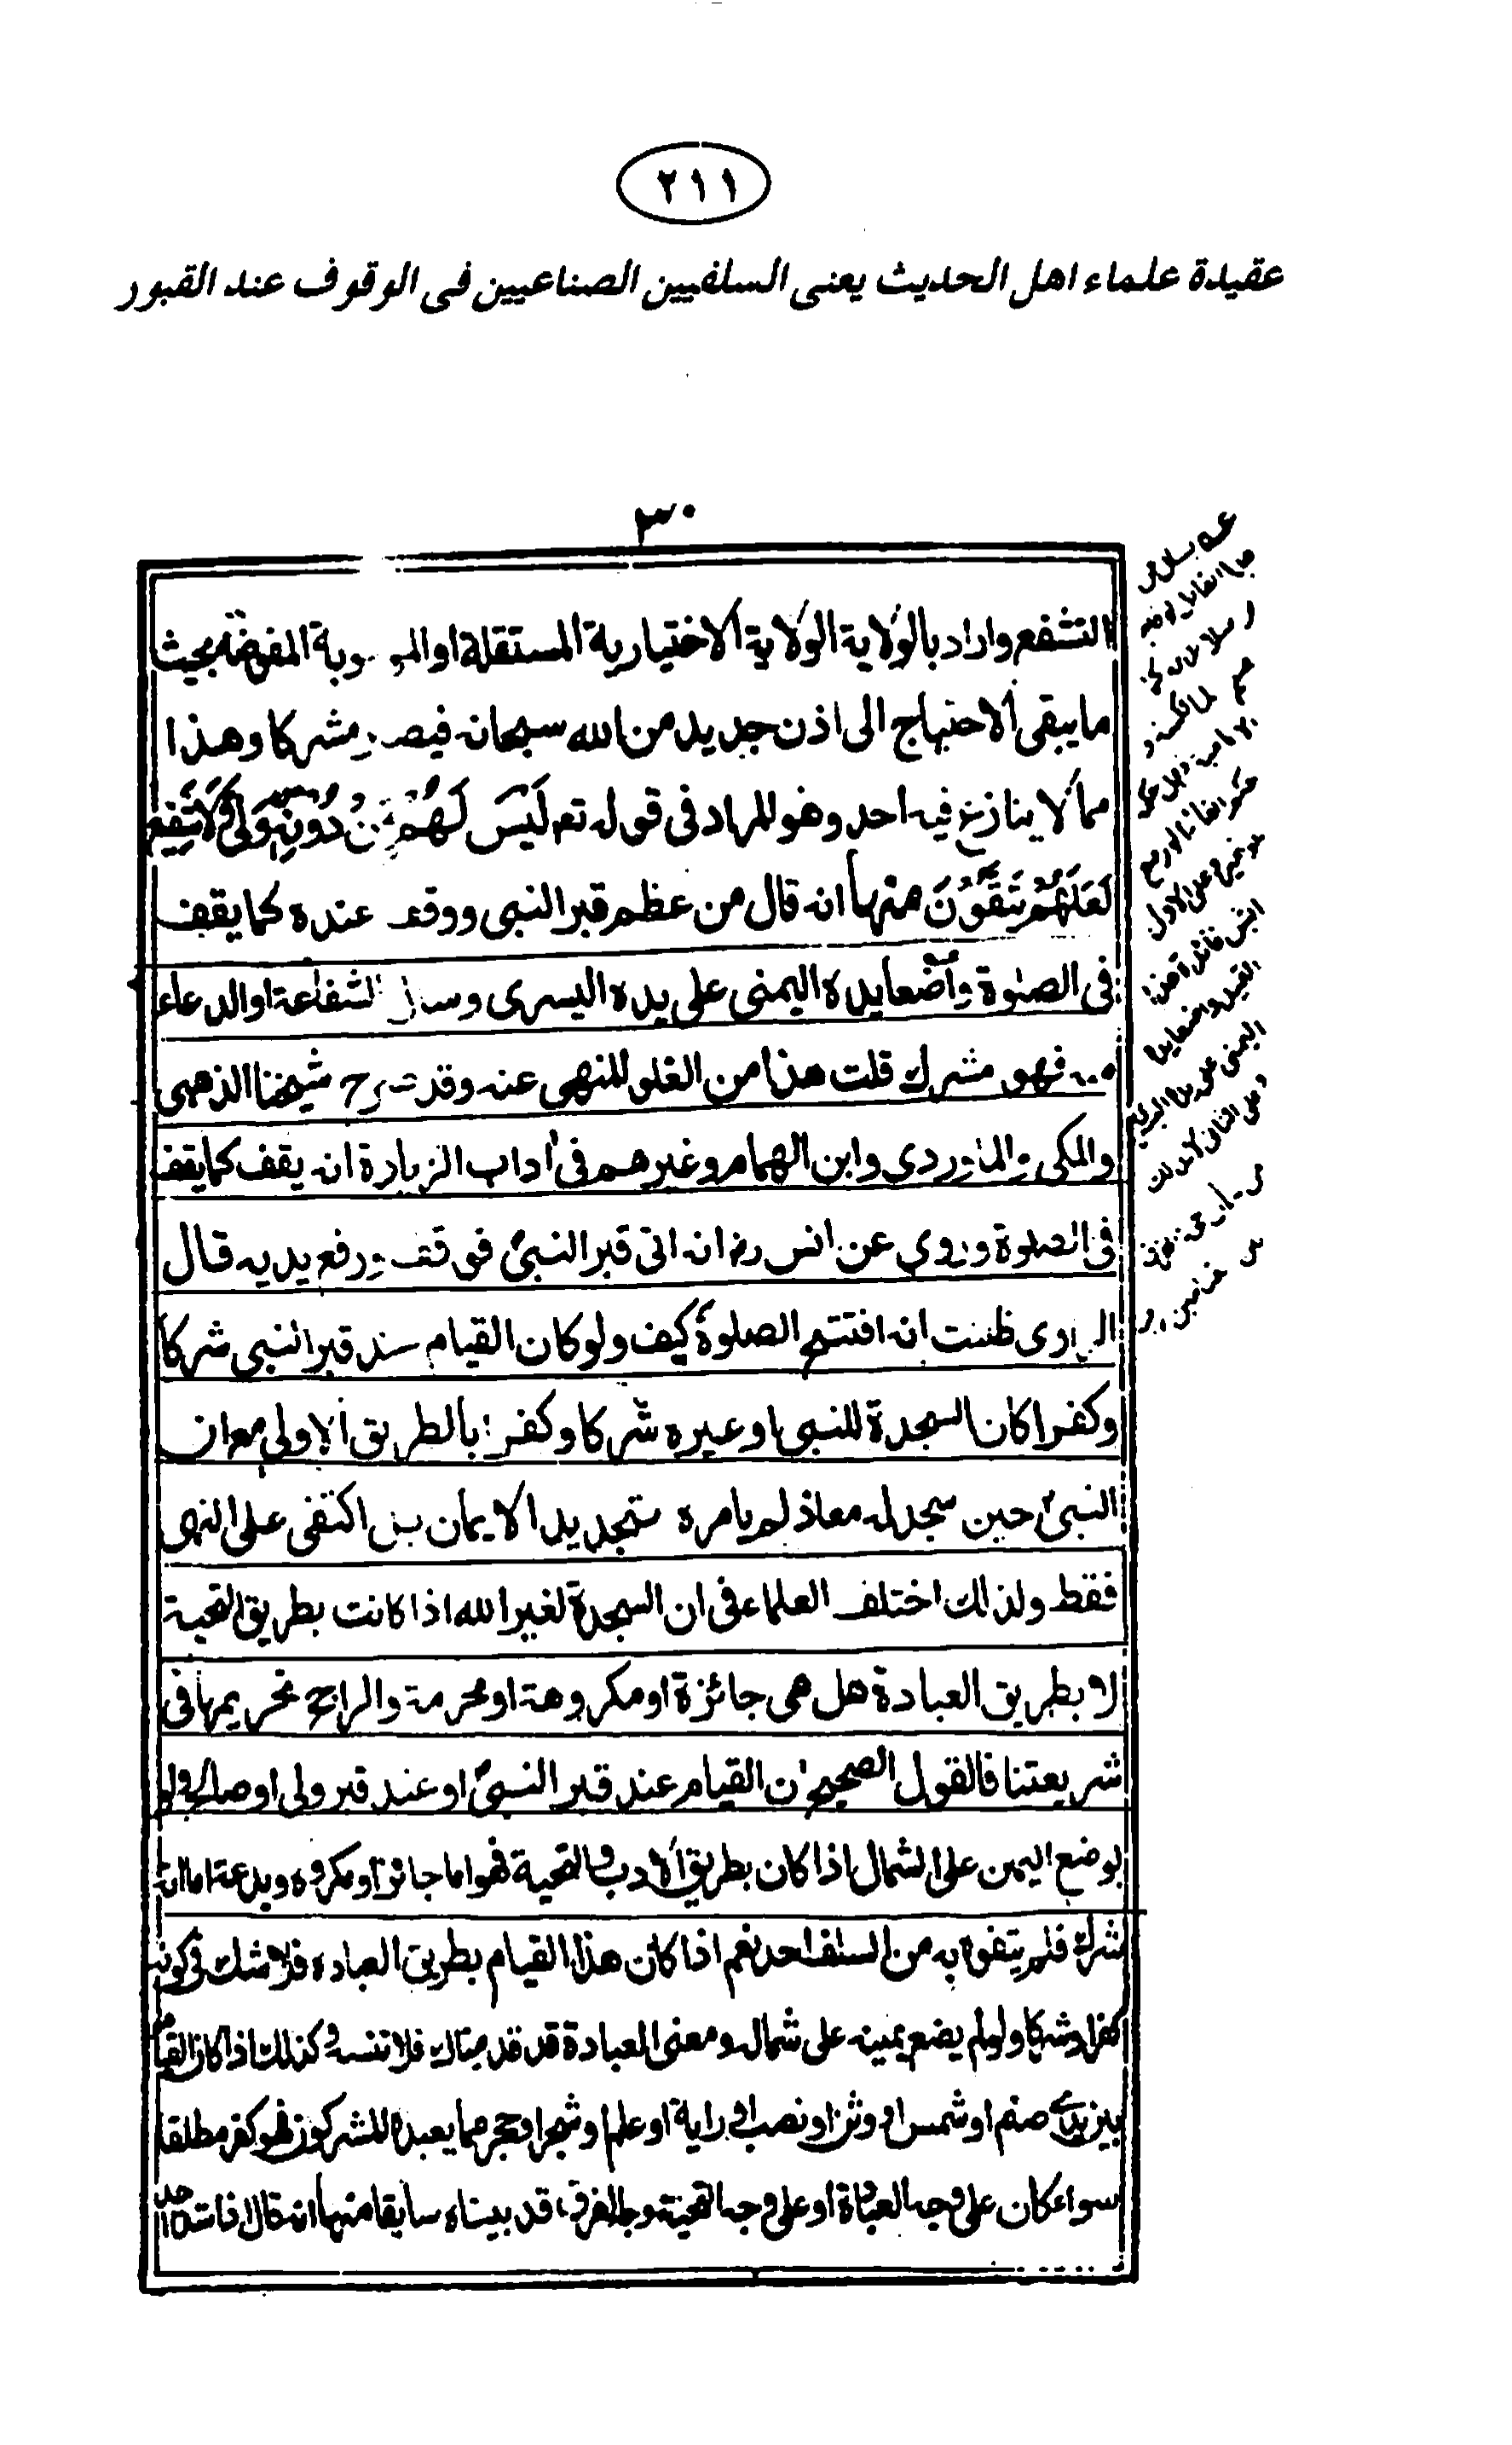 ٢١١
عقيدة علماء اهل الحديث يعنى السلفيين الصناعيين فى الوقوف عند القبور
٣٠
التشفع واراد بالولاية الولاية الاختيارية المستقلة او المفوضة بحيث
ما يبقى الاحتياج الى اذن جديد من الله سبحانه مشركا وهذا
مما لا ينازع فيه احد وهو المراد فى قوله تع لَيْسَ لَهُمْ مِنْ دُونِهٖ وَلِىٌّ وَّلَا شَفِيعٌ
لَعَلَّهُمْ يَتَّقُوْنَ منها انه قال من عظم قبر النبى ووقف عنده كما يقف
فى الصلوة واضعا يده اليمنى على يده اليسرى وسال الشفاعة او الدعاء
منه فهو مشرك قلت هذا من الغلو المنهى عنه وقد صرح شيخنا الذهبى
والمكى والماوردى وابن الهمام وغيرهم فى اداب الزيارة انه يقف كما يقف
فى الصلوة وروى عن انس رض انه اتى قبر النبىؐ فوقف ورفع يديه قال
الراوى ظننت انه افتتح الصلوة كيف ولو كان القيام عند قبر النبى شركا
وكفرا كان السجدة للنبى او غيره شركا وكفرا بالطريق الاولى مع ان
النبىؐ حين سجد له معاذ لم يامره بتجديد الايمان بل اكتفى على النهى
فقط ولذلك اختلف العلماء فى ان السجدة لغير الله اذا كانت بطريق التحية
لا بطريق العبادة هل هى جائزة او مكروهة او محرمة والراجح تحريمها فى
شريعتنا فالقول الصحيح ان القيام عند قبر النبىؐ او عند قبر ولى او صالح ولو
بوضع اليمين على الشمال اذا كان بطريق الادب والتحية فهو اما جائز او مكروه وبدعة اما انه
شرك فلم يتفوه به من السلف احد نعم اذا كان هذا القيام بطريق العبادة فلا شك فى كونه
كفرا وشركا ولو لم يضع يمينه على شماله ومعنى العبادة قد قدمناك فلا تنسه وكذلك اذا كان القيام
بين يدى صنم او شمس او وثن او نصب او راية او علم او شجر او حجر مما يعبده المشركون فهو كفر مطلقا
سواء كان على وجه العبادة او على وجه التحية وجه الفرق قد بيناه سابقا منها انه قال اذا شد احد